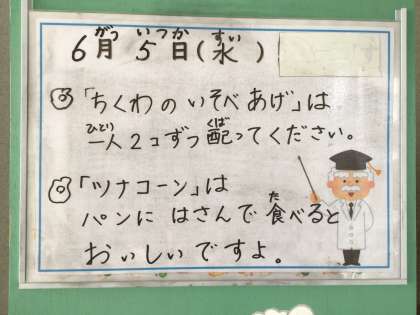 6月5日(水)
「ちくわのいそべあげ」は
一人2コずつ配ってください。
「ツナコーン」は
パンにはさんで食べると
おいしいですよ。